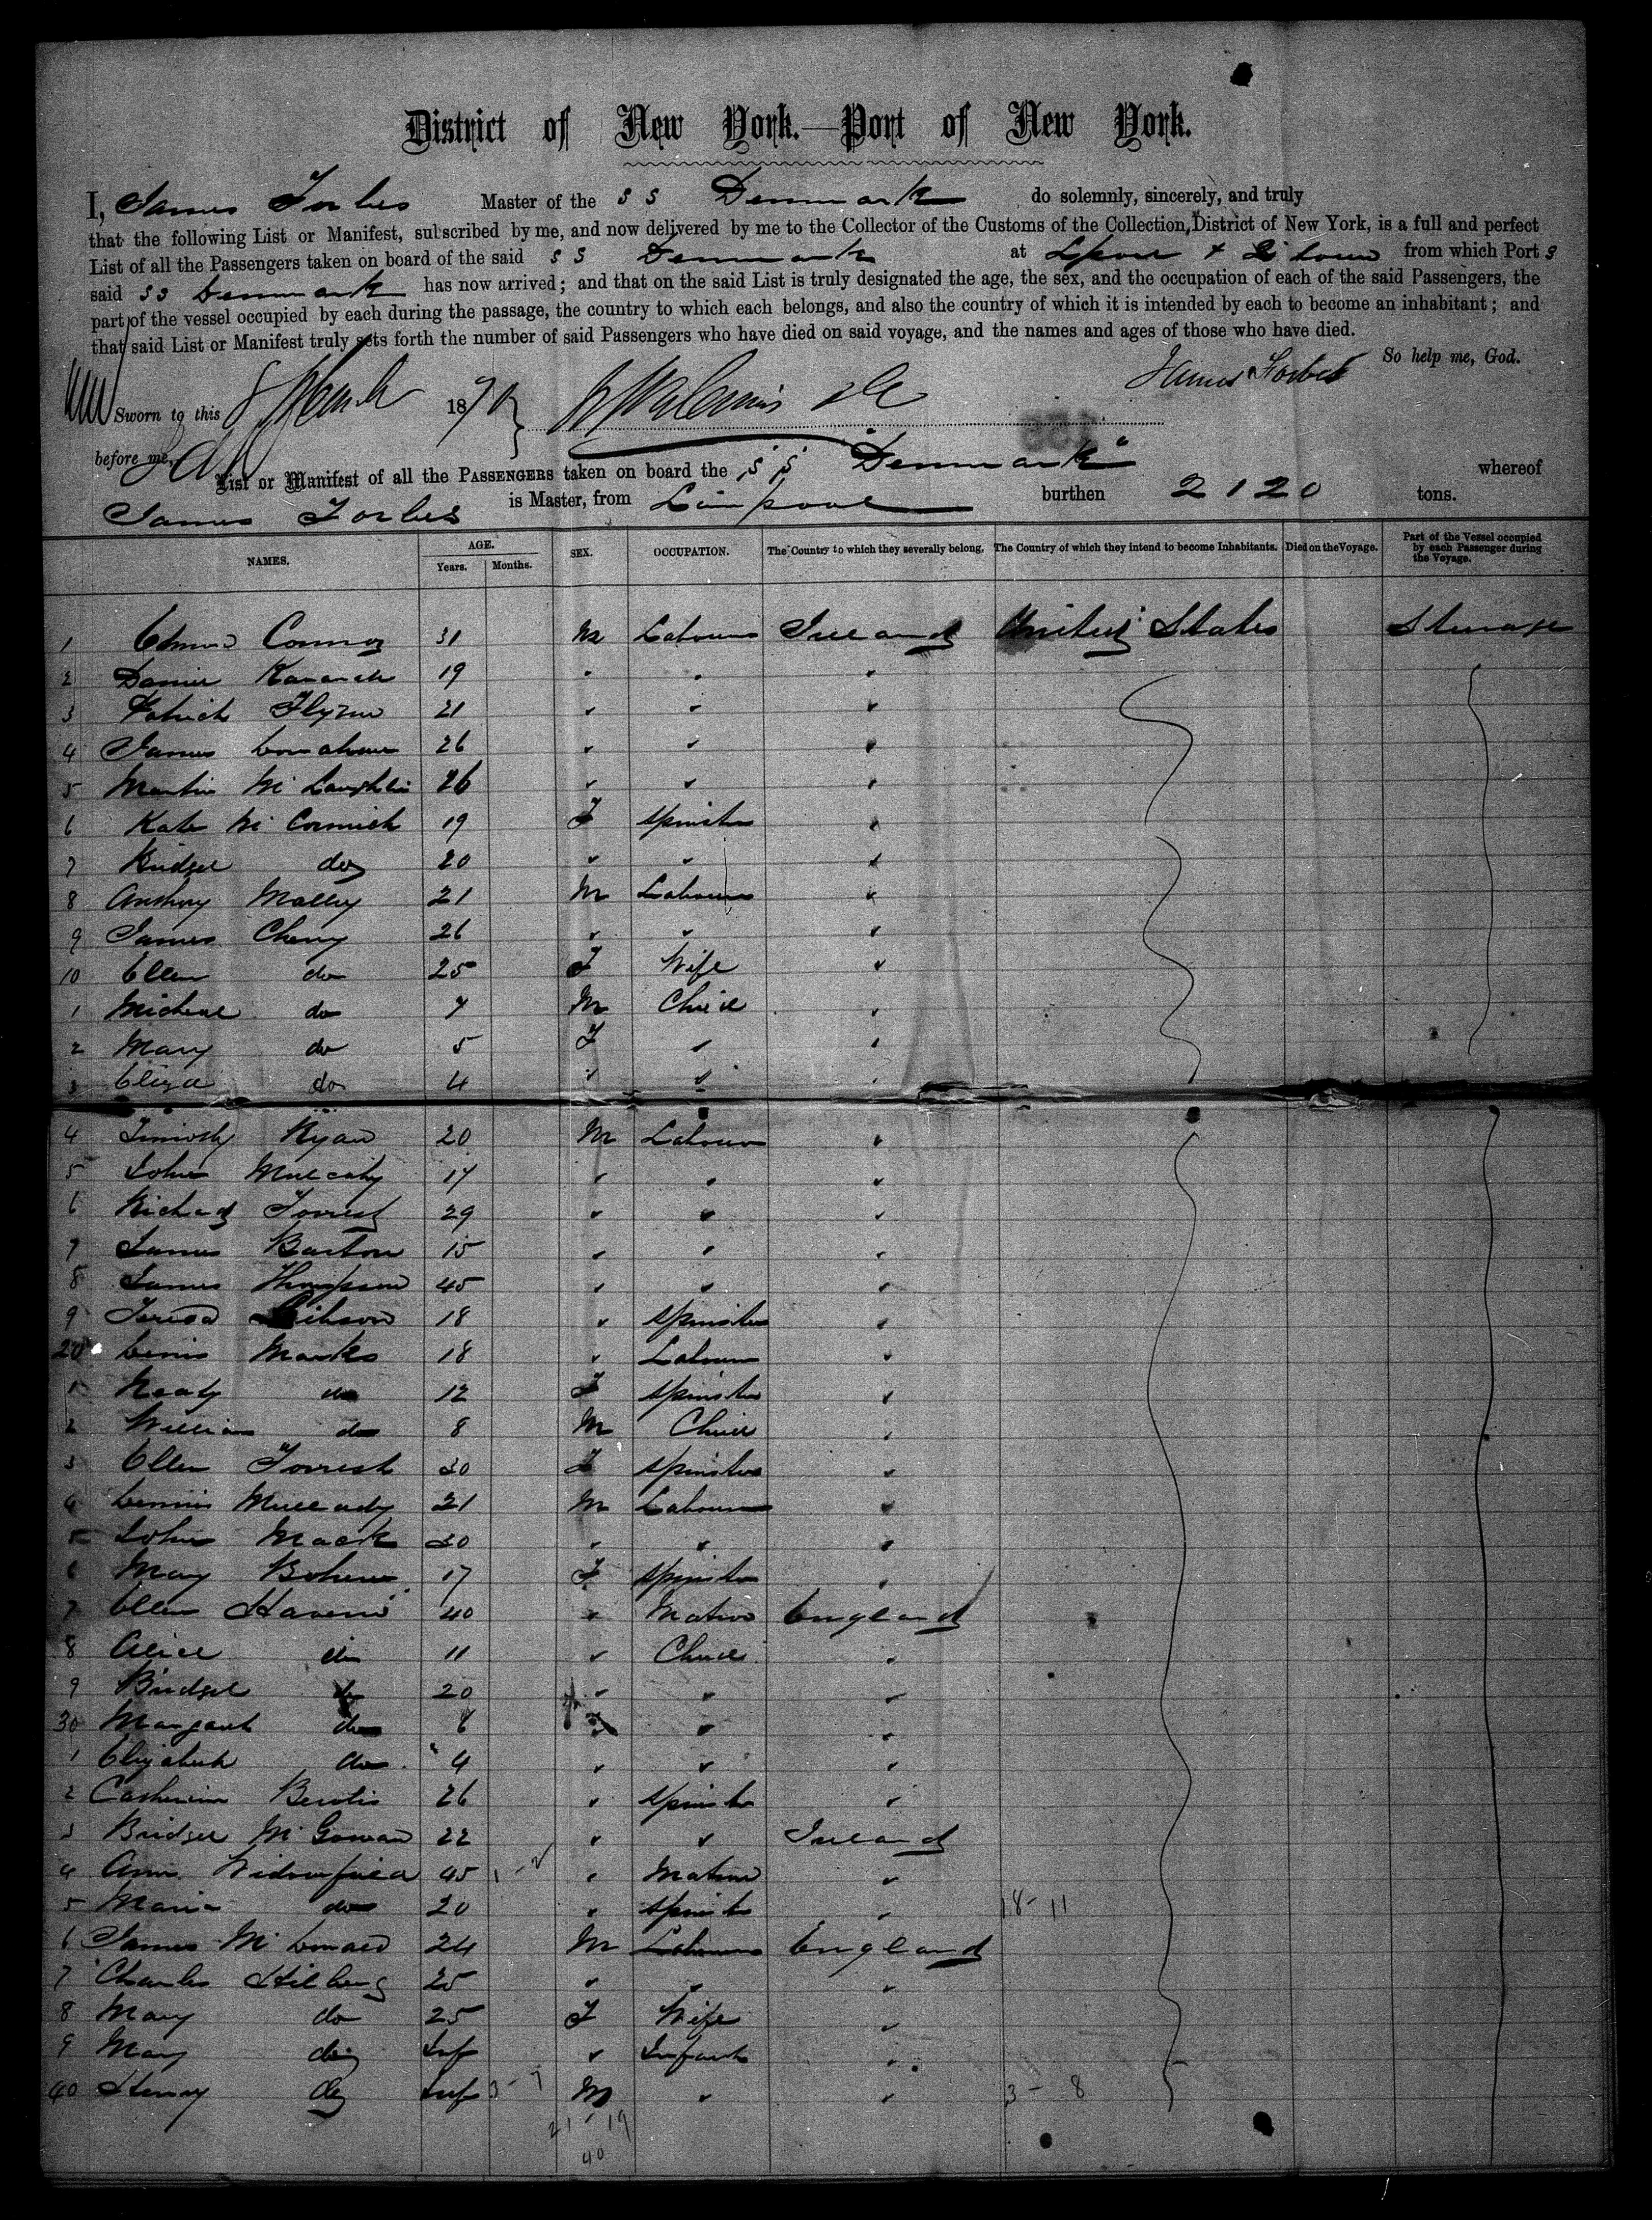 District of New York.—Port of New York.
I, James Forbes Master of the S S Denmark do solemnly, sincerely, and truly
that the following List or Manifest, subscribed by me, and now delivered by me to the Collector of the Customs of the Collection District of New York, is a full and perfect
List of all the Passengers taken on board of the said S S Denmark at Lpool & from which Port s
said S S Denmark has now arrived; and that on the said List is truly designated the age, the sex, and the occupation of each of the said Passengers, the
part of the vessel occupied by each during the passage, the country to which each belongs, and also the country of which it is intended by each to become an inhabitant; and
that said List or Manifest truly sets forth the number of said Passengers who have died on said voyage, and the names and ages of those who have died.
So help me, God.
James Forbes
Sworn to this 8 March 1870
before me,
List or Manifest of all the PASSENGERS taken on board the S S "Denmark" whereof
James Forbes is Master, from Liverpool burthen 2120 tons.
NAMES. AGE. Years. Months. SEX. OCCUPATION. The Country to which they severally belong. The Country of which they intend to become Inhabitants. Died on the Voyage. Part of the Vessel occupied by each Passenger during the Voyage.
1 Connor 31 M Labourer Ireland United States Steerage
2 19 " " "
3 Patrick Flynn 21 " " "
4 James Donahue 26 " " "
5 Martin McLaughlin 26 " " "
6 Kate McCormick 19 F Spinster "
7 Bridget do 20 " " "
8 Anthony Malley 21 M Labourer "
9 James Cherry 26 " " "
10 Ellen do 25 F Wife "
1 Micheal do 7 M Child "
2 Mary do 5 F " "
3 Eliza do 4 " " "
4 Timothy Ryan 20 M Labourer "
5 John Mulcahy 17 " " "
6 Richard Forrest 29 " " "
7 James Barton 15 " " "
8 James Thompson 45 " " "
9 Teresa Gibson 18 " Spinster "
20 Marks 18 " Labourer "
1 do 12 F Spinster "
2 William do 8 M Child "
3 Ellen Forrest 30 F Spinster "
4 Dennis 21 M Labourer "
5 John Mack 30 " " "
6 Mary 17 F Spinster "
7 Ellen 40 " Matron England
8 Alice do 11 " Child "
9 Bridget do 20 " " "
30 Margaret do 6 " "
1 Elizabeth do 4 " " "
2 Catherine 26 " Spinster "
3 Bridget McGowan 22 " " Ireland
4 Ann 45 " Matron "
5 Maria do 20 " Spinster " 18-11
6 James McDonald 24 M Labourer England
7 Charles 25 " " "
8 Mary do 25 F Wife "
9 Mary do Inf " Infant "
40 Henry do Inf M " " 3-8
21-19
40